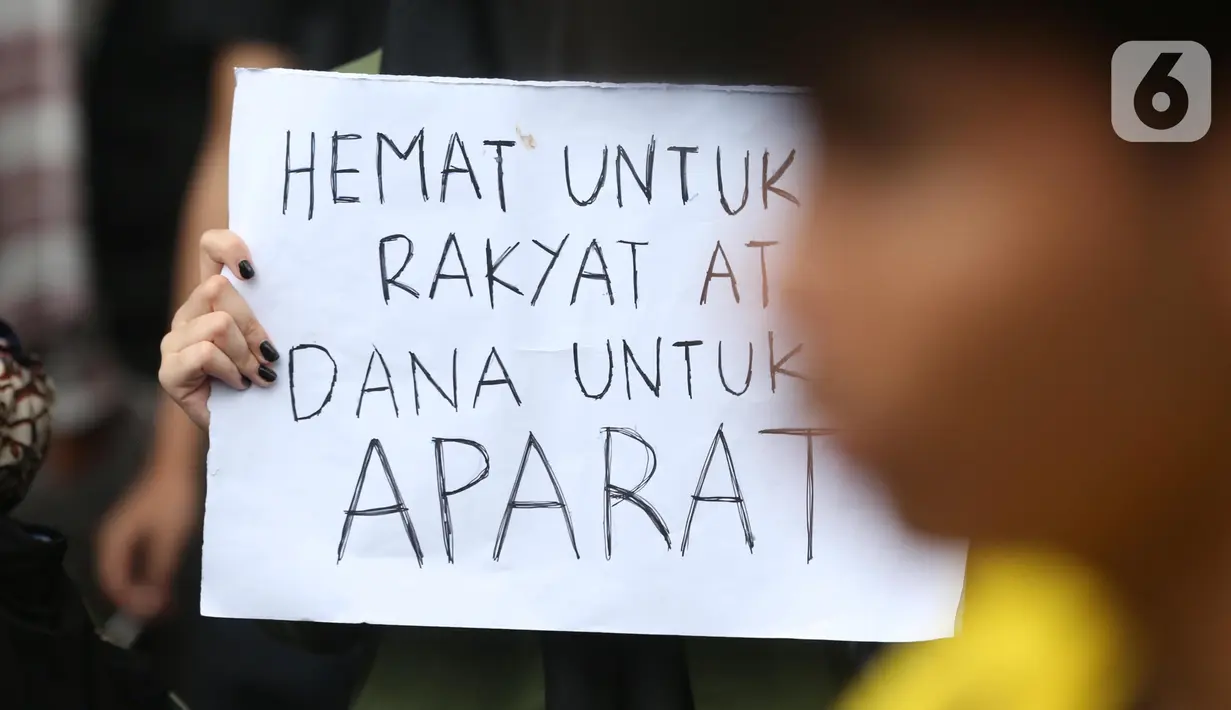 HEMAT UNTUK
RAKYAT
DANA UNTUK
APARAT
6